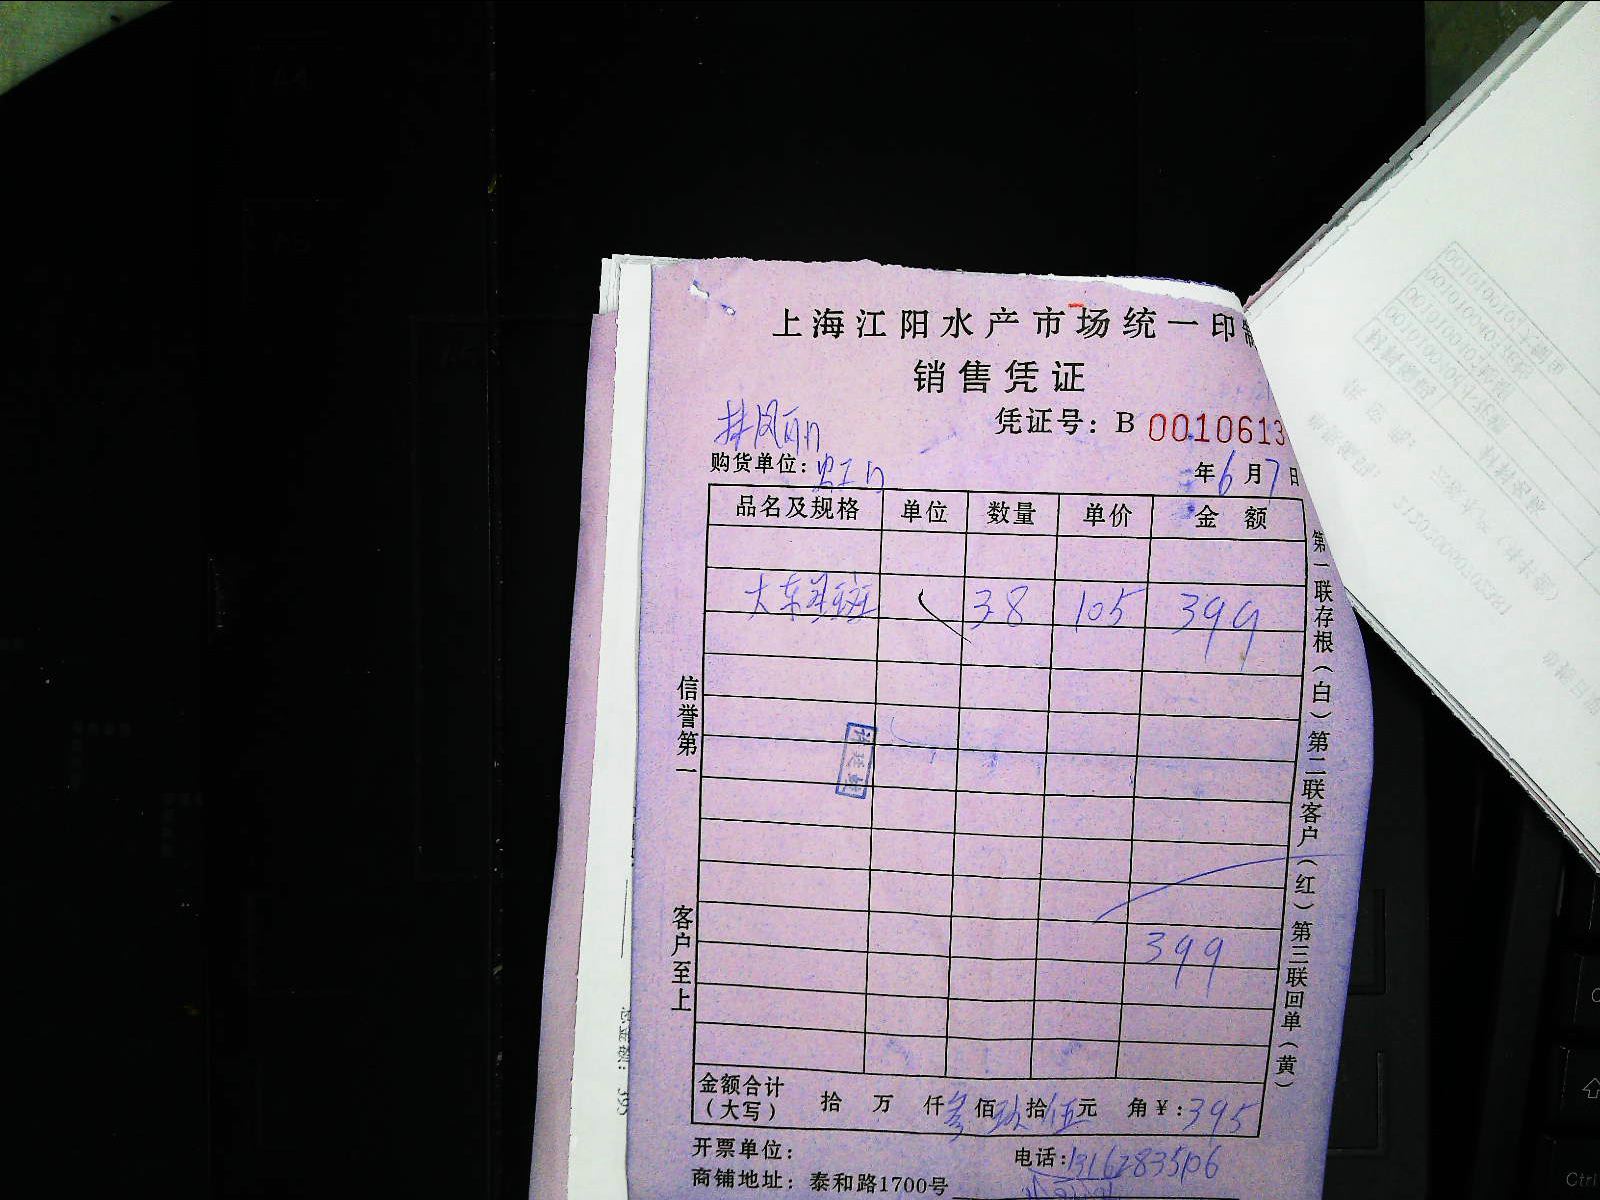 上海江阳水产市场统一印制
销售凭证
凭证号：B 0010613
购货单位：虹口
年6月7日
品名及规格 单位 数量 单价 金额
大东星斑 38 105 399
399
金额合计（大写） 拾 万 仟叁佰玖拾伍元 角￥:395
开票单位：
电话:13162835106
商铺地址：泰和路1700号
信誉第一
客户至上
第一联存根（白）第二联客户（红）第三联回单（黄）